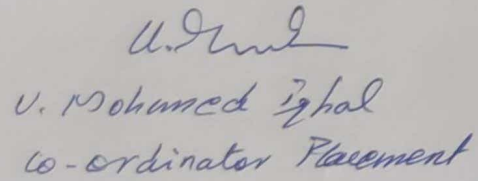 U. Mohamed Iqbal
Co-ordinator Placement